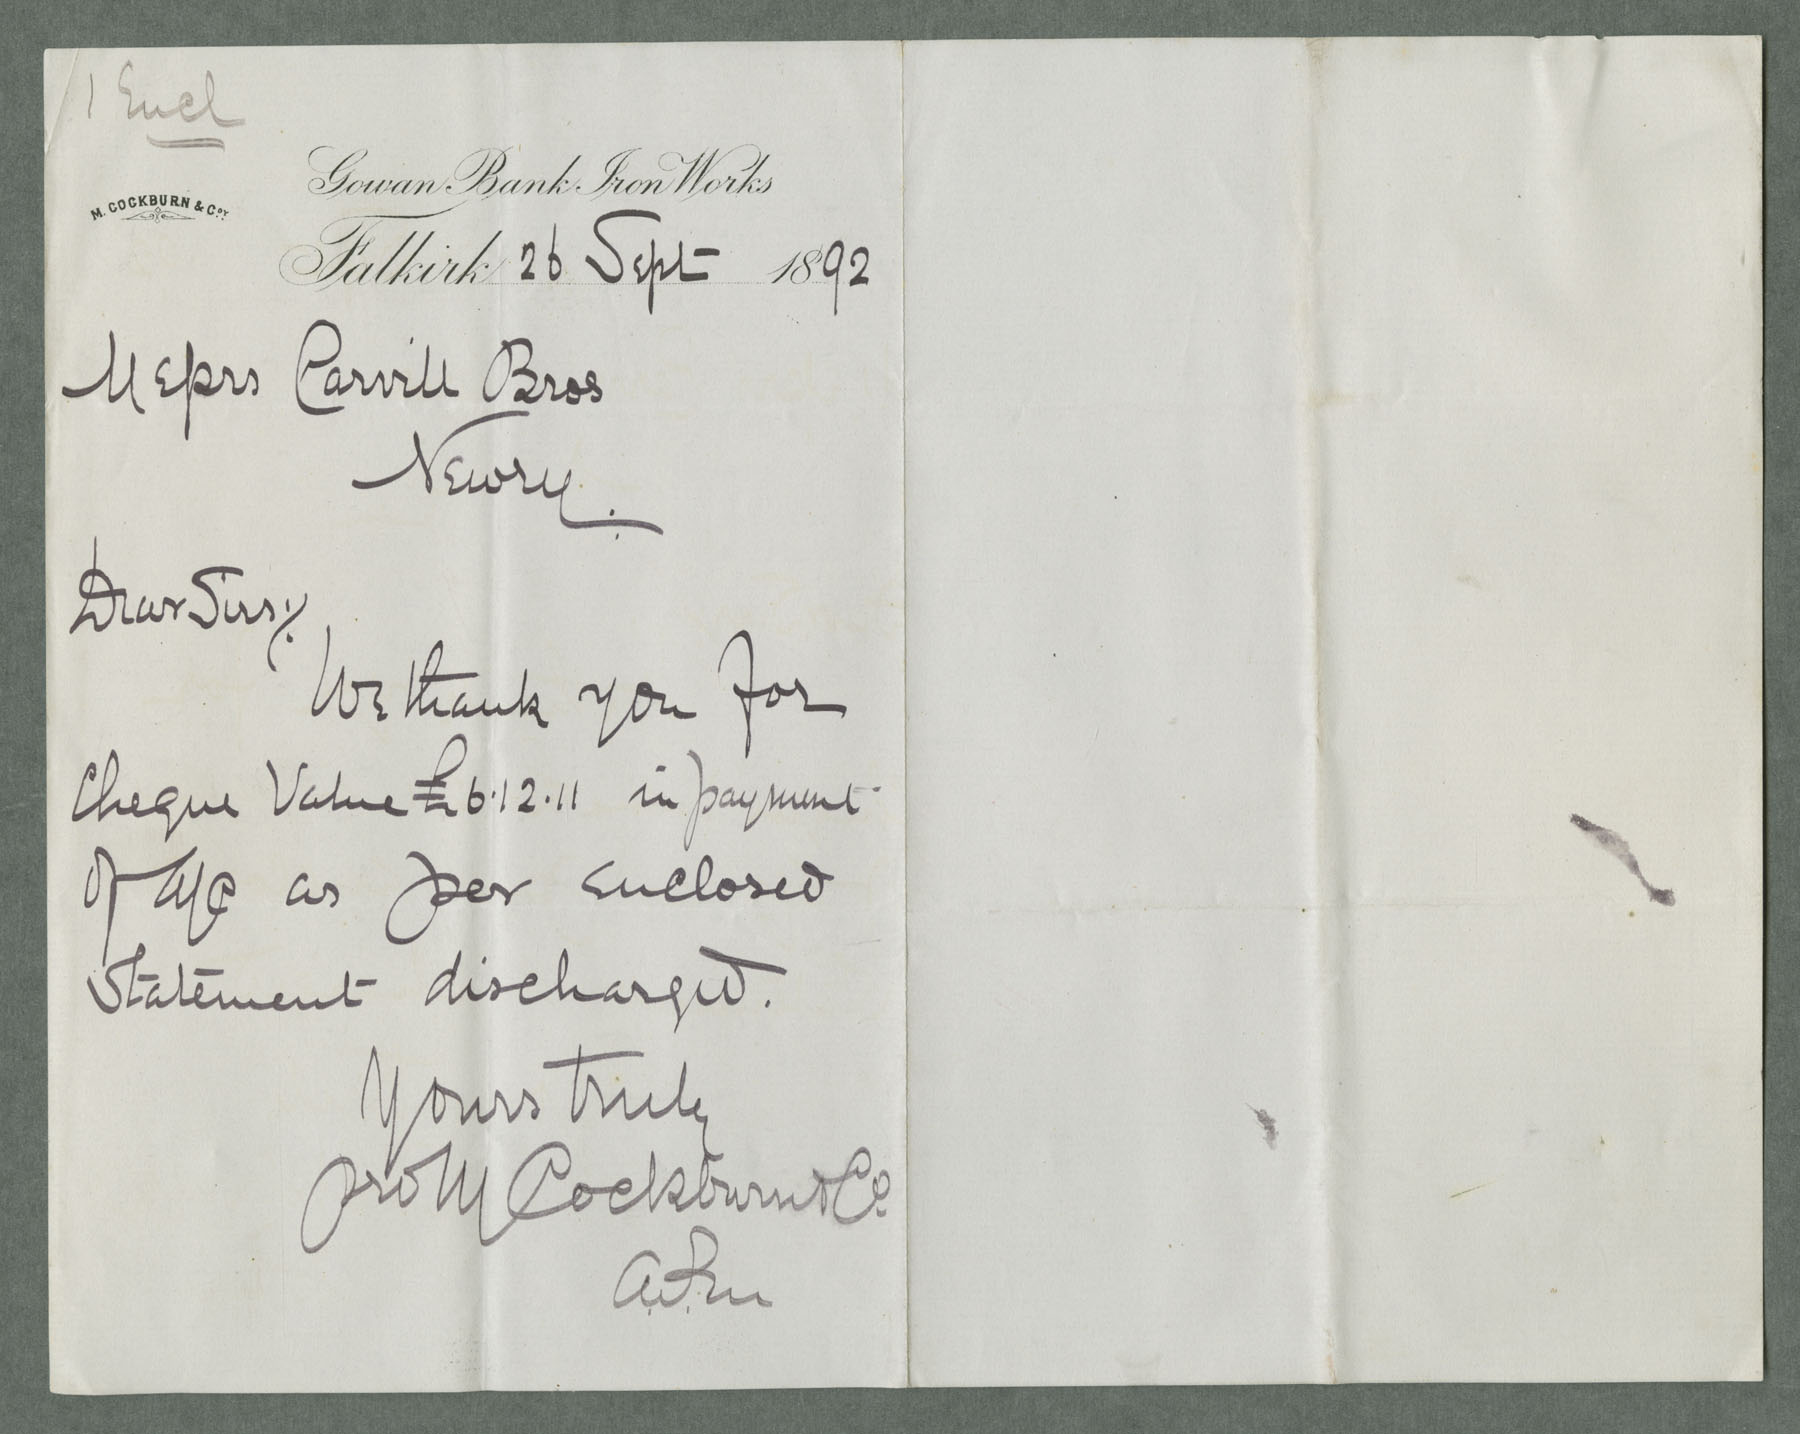 1 Encl
Gowan Bank Iron Works
M. COCKBURN & Coy.
Falkirk 26 Sept 1892
Messrs Carvill Bros
Newry.
Dear Sirs,
We thank you for
Cheque Value £6.12.11 in payment
of a/c as per enclosed
Statement discharged.
Yours truly
pro M Cockburn & Co.